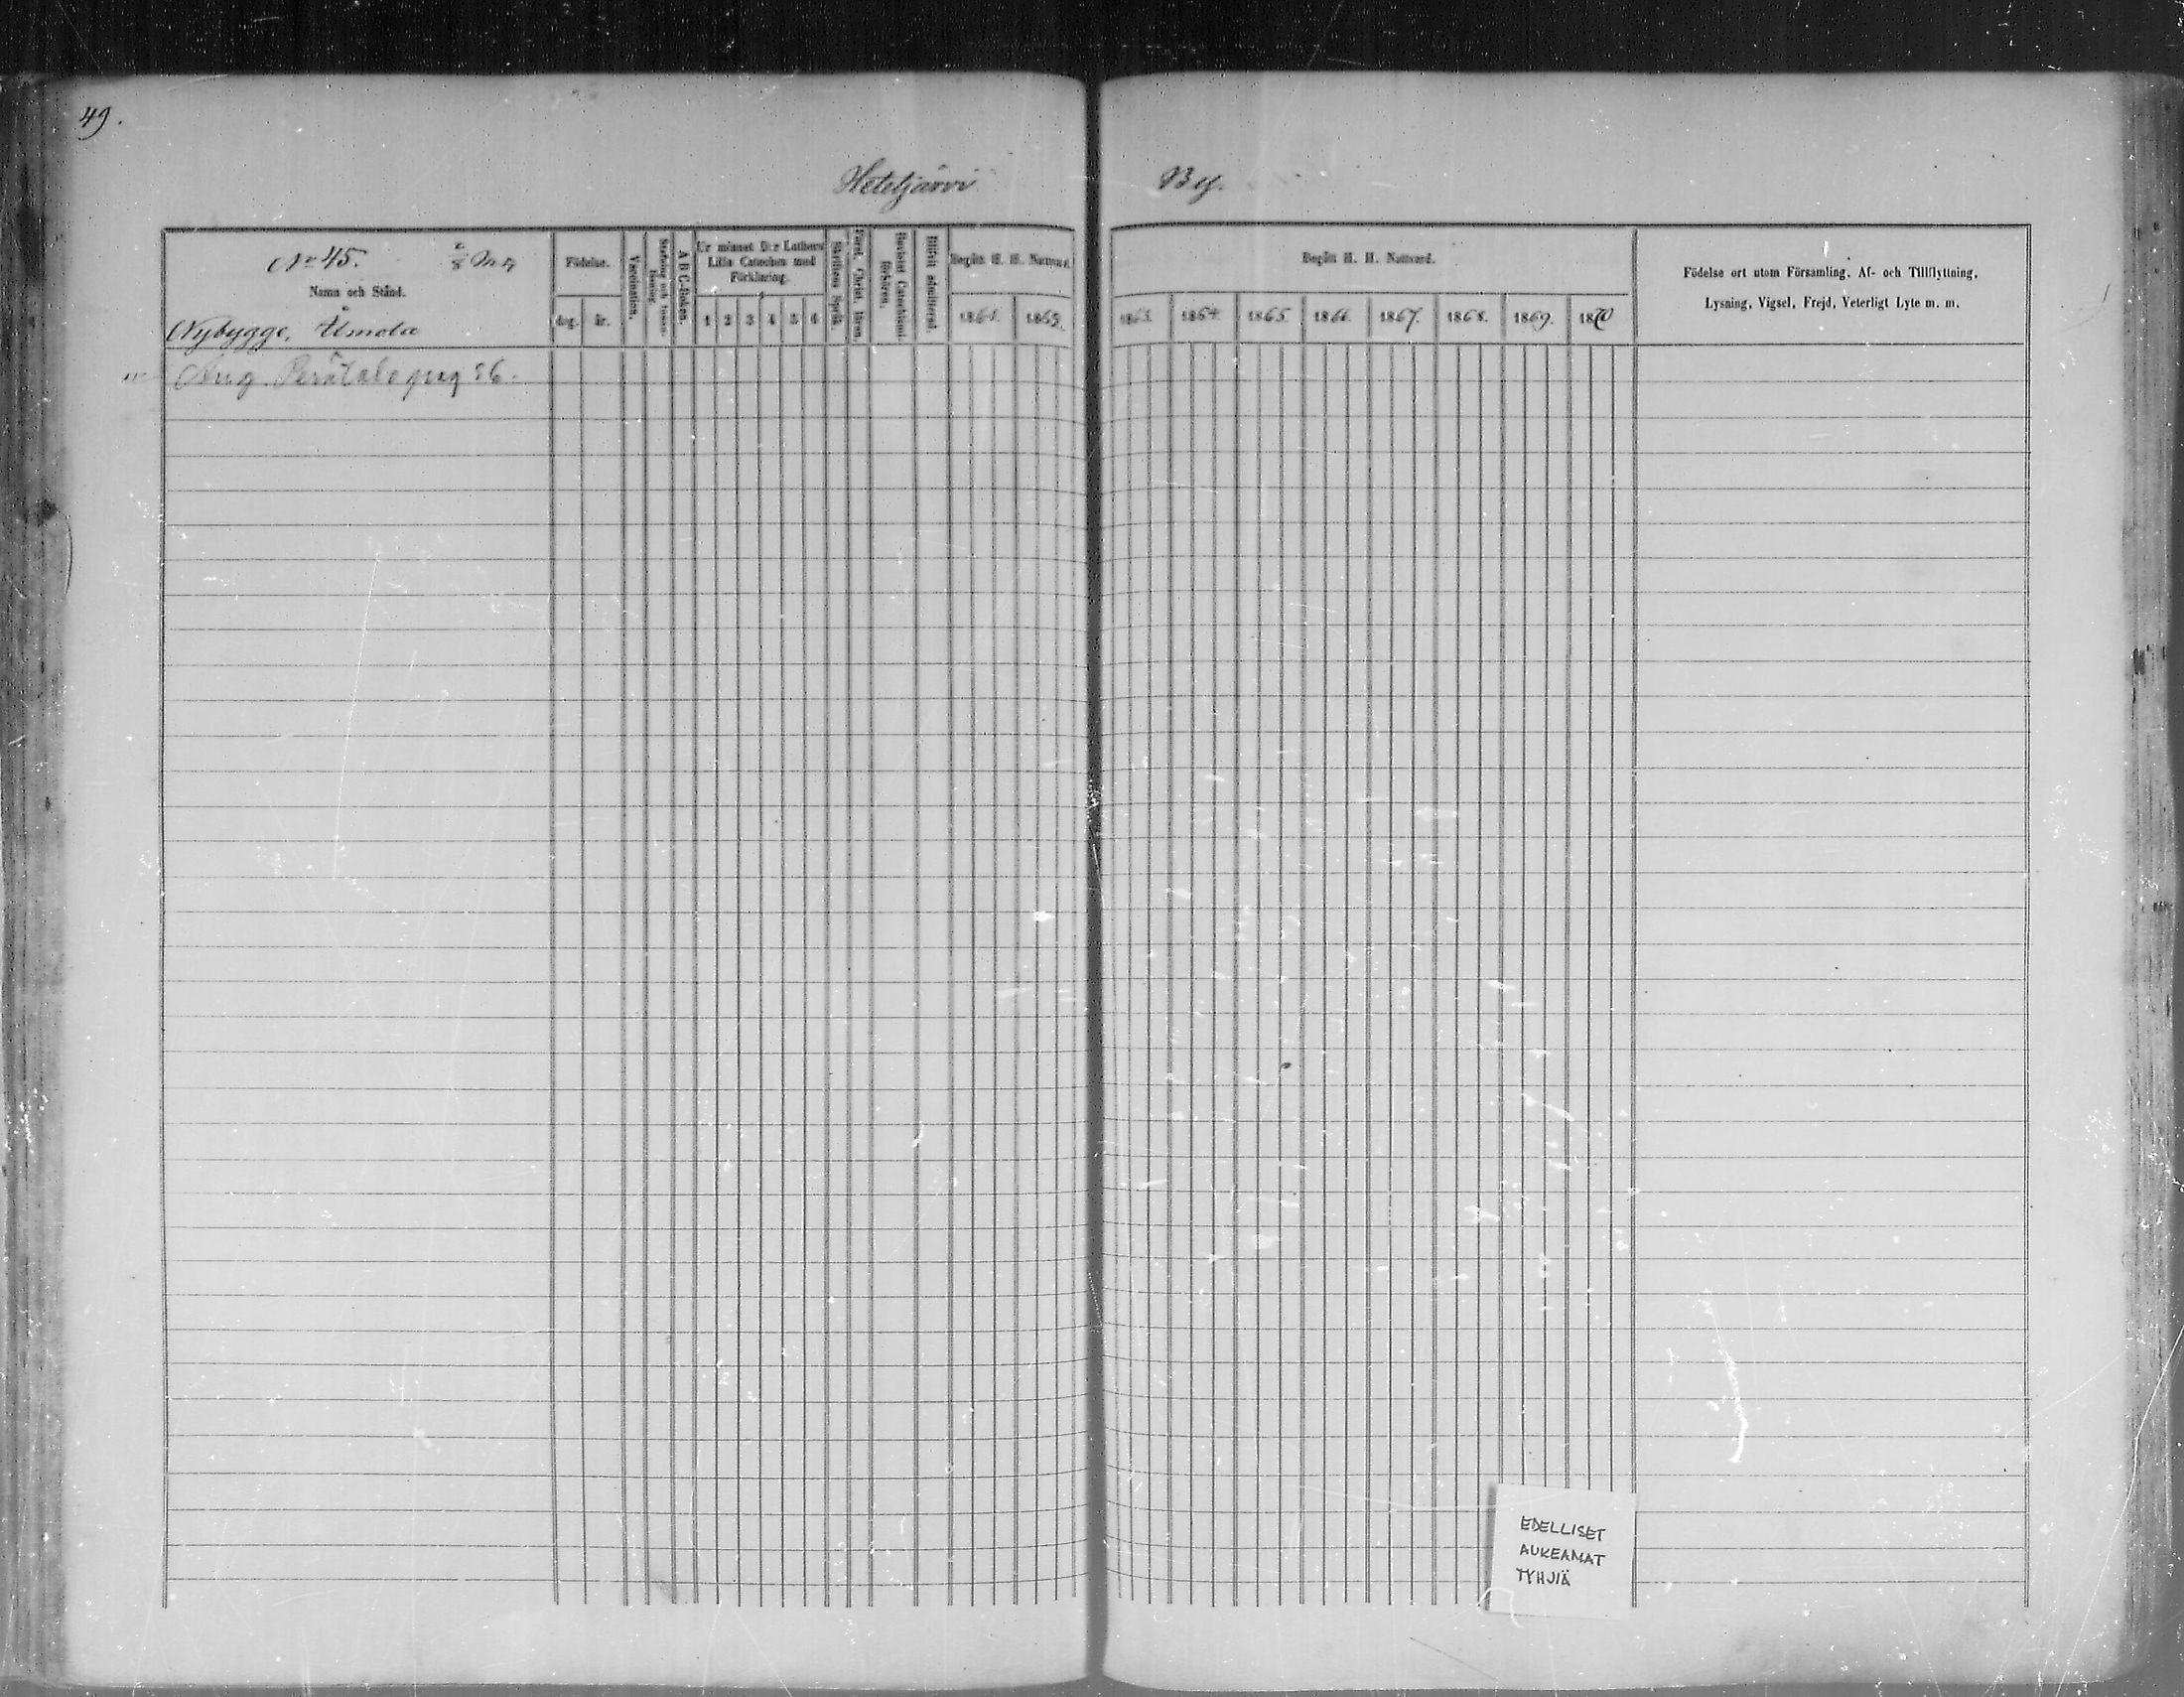 49.
Hetetjärvi By.
No 45. 2/8 Mtl
Namn och Stånd.
Nybygge, Åmola
Födelse.
dag. år.
Vaccination.
Stafning och Innanläsning.
A B C-Boken.
Ur minnet D:r Luthers
Lilla Cateches med
Förklaring.
1 2 3 4 5 6
Skriftens Språk.
Bevistat Catechismi-
förhören.
Blifvit admitterad.
Begått H. H. Nattvard.
1861. 1862.
Begått H. H. Nattvard.
1863. 1864. 1865. 1866. 1867. 1868. 1869. 1870
Födelse ort utom Församling, Af- och Tillflyttning,
Lysning, Vigsel, Frejd, Veterligt Lyte m. m.
Aug. Perätalo pag 56.
EDELLISET
AUKEAMAT
TYHJIÄ